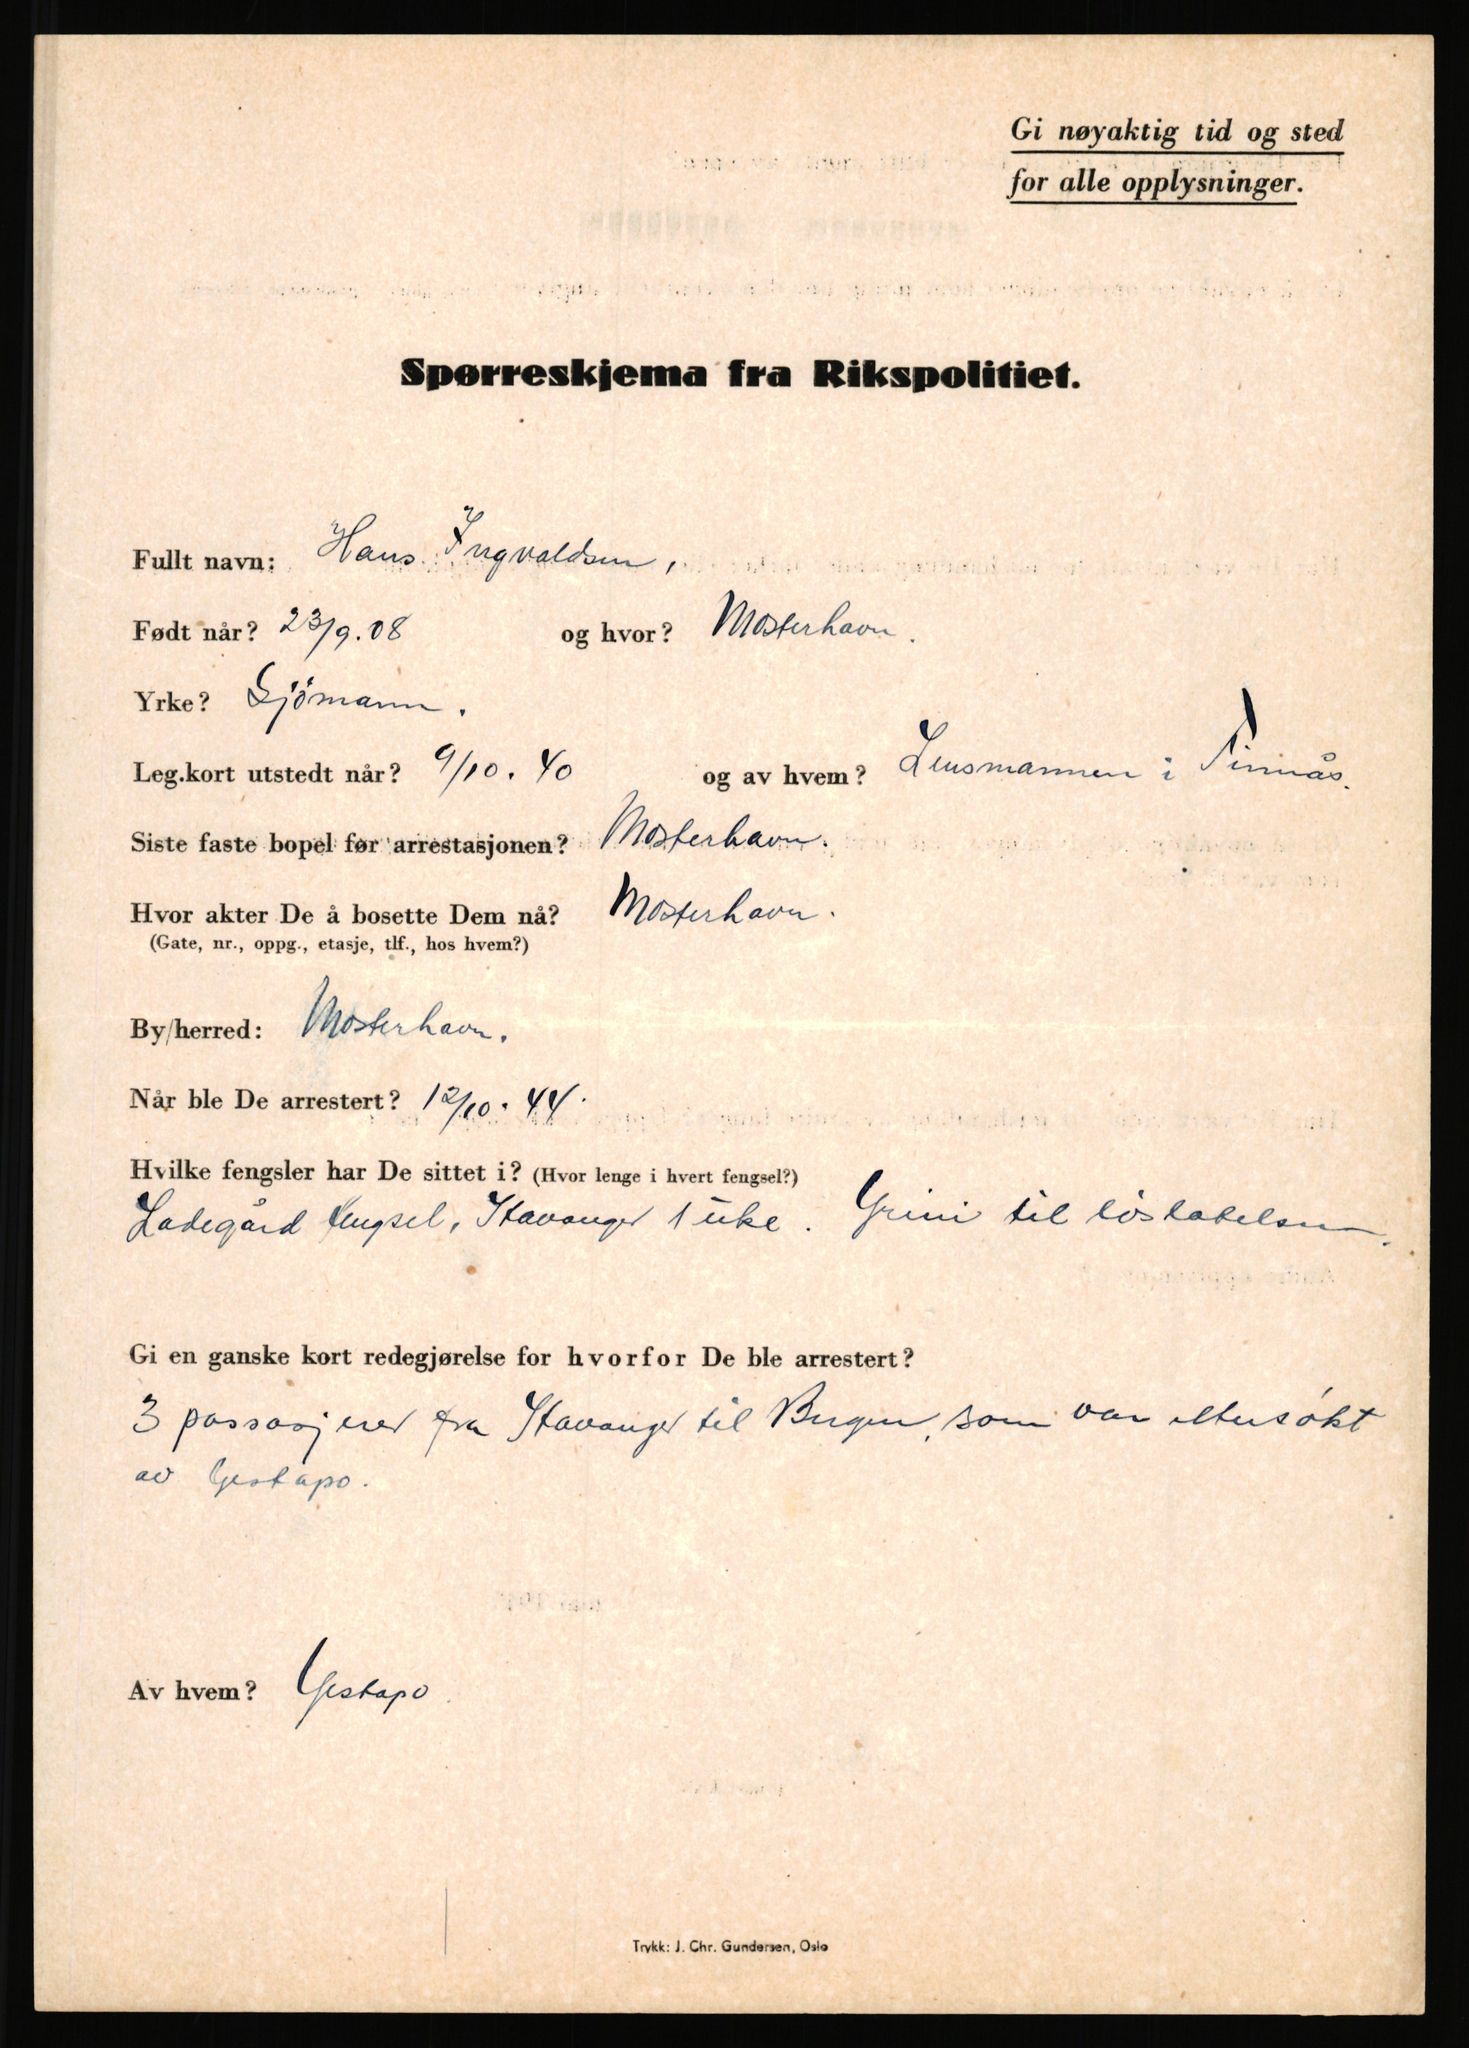 Gi nøyaktig tid og sted
for alle opplysninger.
Spørreskjema fra Rikspolitiet.
Fullt navn: Hans Ingvaldsen,
Født når? 23/9.08 og hvor? Mosterhavn.
Yrke? Sjömann.
Leg.kort utstedt når? 9/10.40 og av hvem? Lensmannen i Finnås.
Siste faste bopel før arrestasjonen? Mosterhavn.
Hvor akter De å bosette Dem nå? Mosterhavn.
(Gate, nr., oppg., etasje, tlf., hos hvem?)
By/herred: Mosterhavn.
Når ble De arrestert? 12/10.44.
Hvilke fengsler har De sittet i? (Hvor lenge i hvert fengsel?)
Ladegård fengsel, Stavanger 1 uke. Grini til löslatelsen.
Gi en ganske kort redegjørelse for hvorfor De ble arrestert?
3 passasjerer fra Stavanger til Bergen, som var ettersökt
av Gestapo.
Av hvem? Gestapo.
Trykk: J. Chr. Gundersen, Oslo